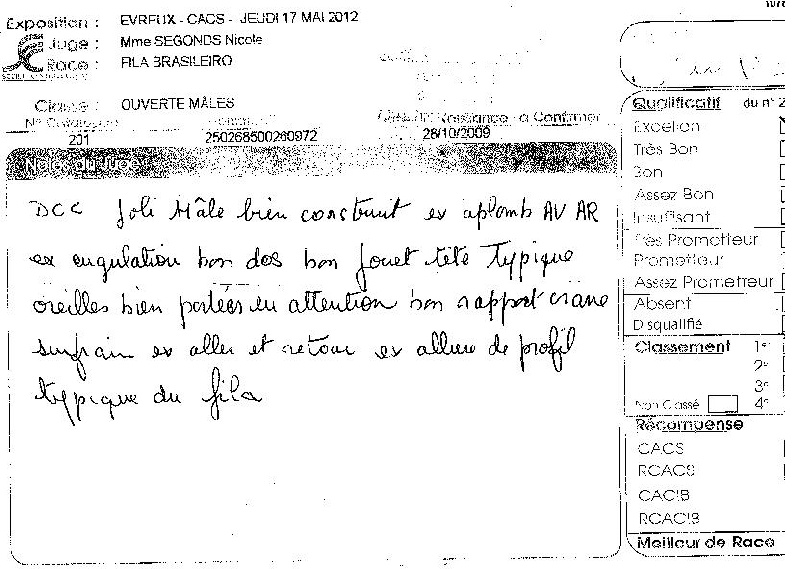 Exposition : EVREUX - CACS - JEUDI 17 MAI 2012
Juge : Mme SEGONDS Nicole
Race : FILA BRASILEIRO
Classe : OUVERTE MÂLES
N° Catalogue
à Confirmer
201 250268500260972 28/10/2009
Notes du Juge
DCC Joli Mâle bien construit ex aplomb AV AR
ex angulation bon dos bon fouet tête Typique
oreilles bien portées en attention bon rapport crane
ex aller et retour ex allure de profil
typique du fila
Qualificatif du n° 2
Excellent
Très Bon
Bon
Assez Bon
Insuffisant
Très Prometteur
Prometteur
Assez Prometteur
Absent
Disqualifié
Classement 1er
2e
3e
Non Classé 4e
Récompense
CACS
RCACS
CACIB
RCACIB
Meilleur de Race